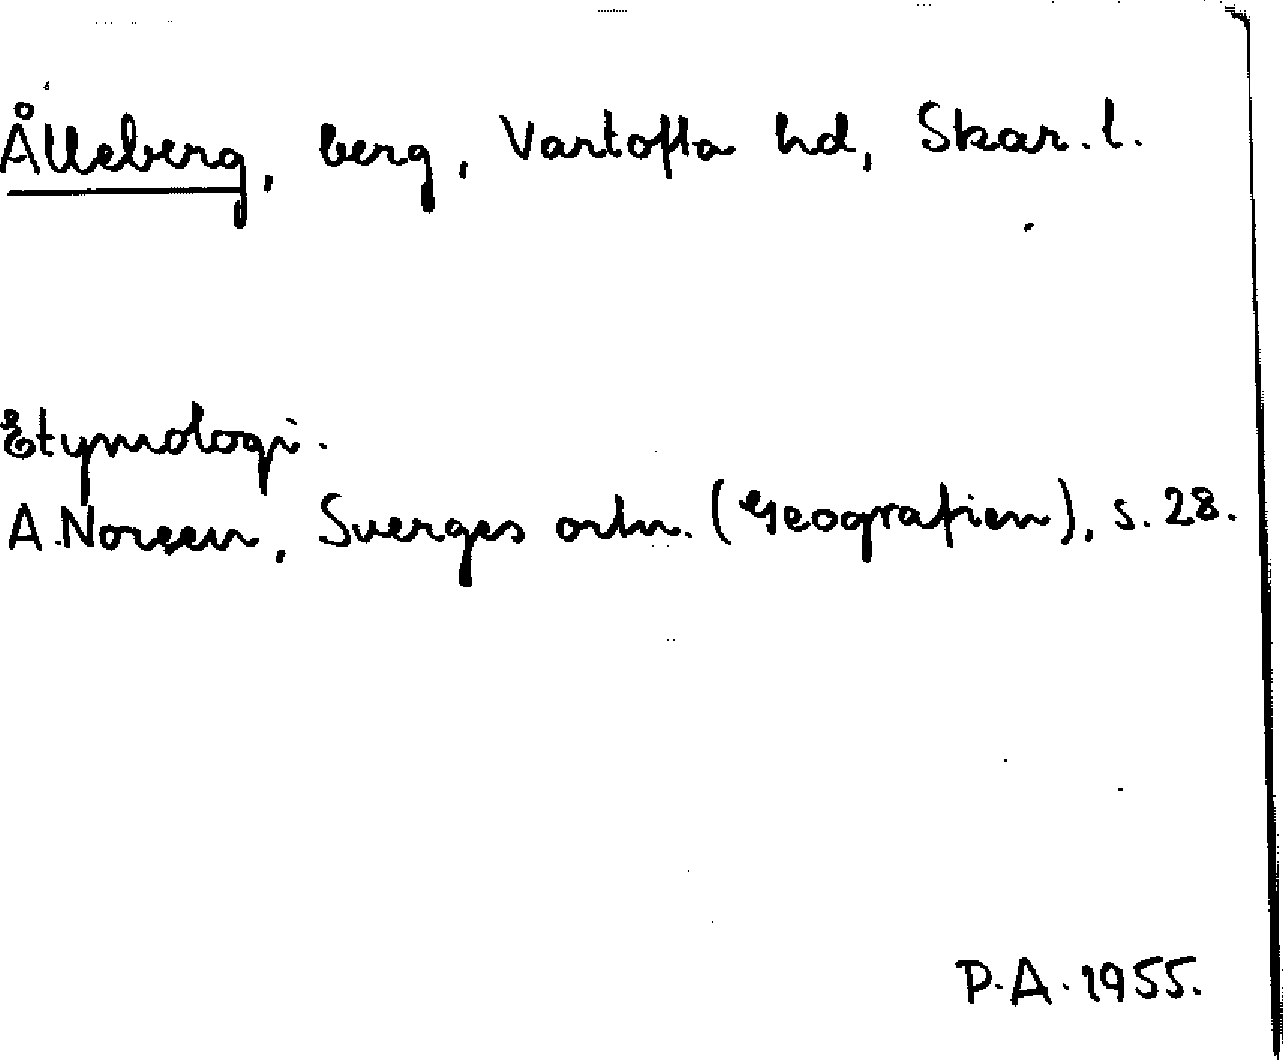 Ålleberg, berg, Vartofta hd, Skar. l.
Etymologi.
A. Noreen, Sverges ortn. (Geografien), s. 28.
P.A. 1955.